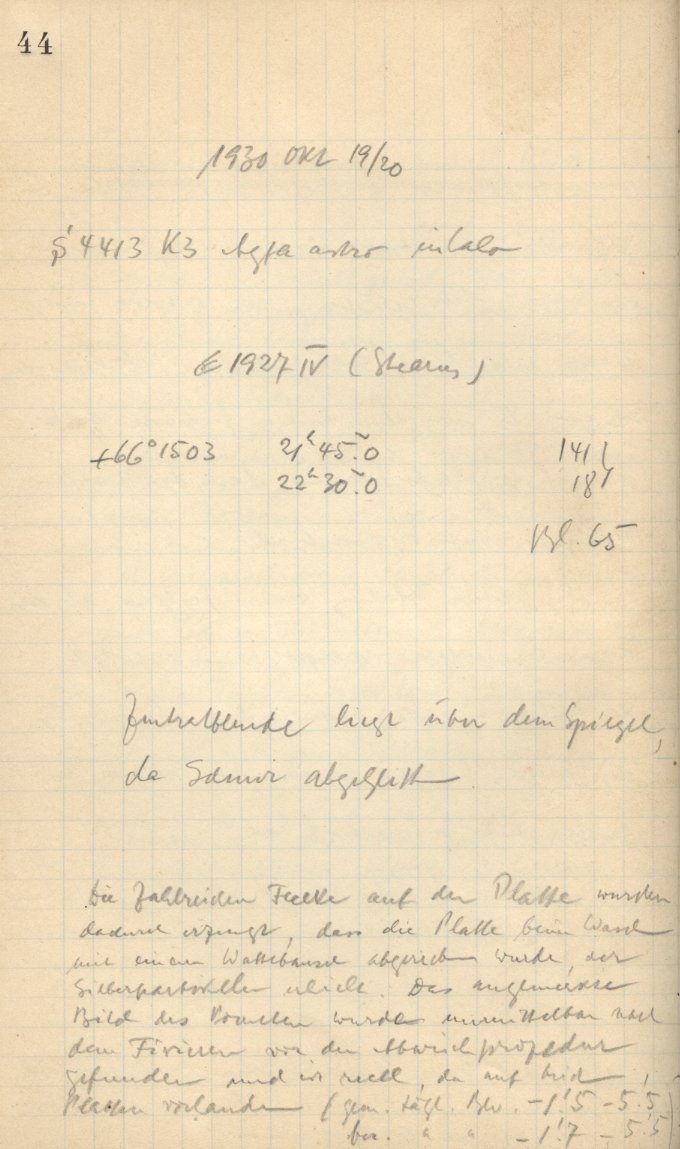 44
1930 Okt 19/20
4413 K3 Agfa astro
1927 IV (Stearns)
+66°1503 21ʰ45ᵐ.0 141
22ʰ30ᵐ.0 18
Bl. 65
Zentralblende liegt über dem Spiegel,
da
Die zahlreichen Flecke auf der Platte wurden
dadurch erzeugt, dass die Platte beim
mit einem Wattebausch abgerieben wurde, der
Das angemerkte
Bild des Kometen wurde unmittelbar nach
dem Fixieren vor der
gefunden und ist reell, da auf
Platten vorhanden (gem. tägl. Bew. -1'.5 -5'.5
ber. " " -1'.7 -5'.5)